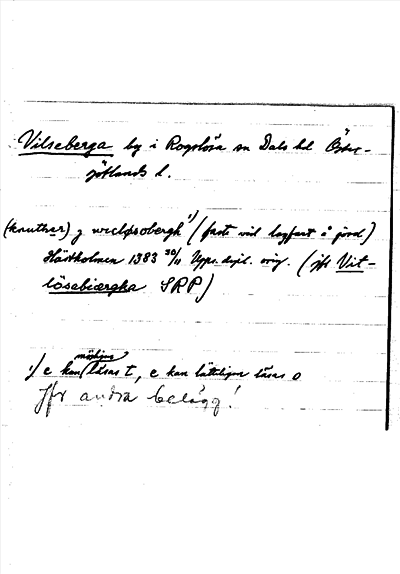 Vilseberga by i Rogslösa sn Dals hd Öster-
götlands l.
(knuther) j wicløsobergh 1) (faste vid lagfart å jord)
Hästholmen 1383 30/11 Upps. dipl. orig. (jfr Vit-
lösabiærgha SRP)
1) c kan möjligen läsas t, e kan lättligen läsas o
Jfr andra belägg!